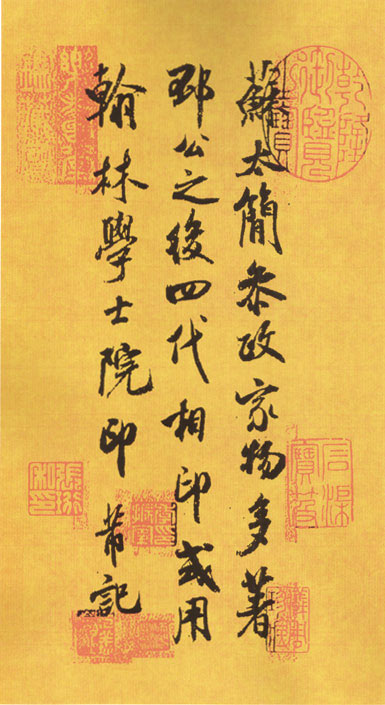 蘇太簡參政家物多著
邳公之後四代相印或用
翰林學士院印芾記
乾隆御覽